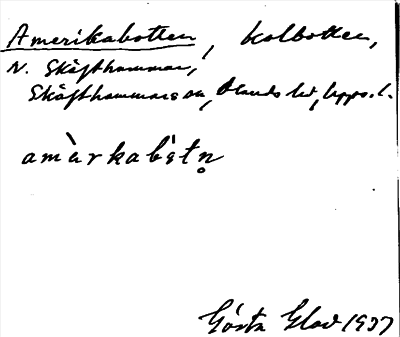 Amerikabotten, kolbotten,
N. Skäfthammar,
Skäfthammars sn, Olands hd, Upps. l.
amèrkabòtn̥
Gösta Glad 1937